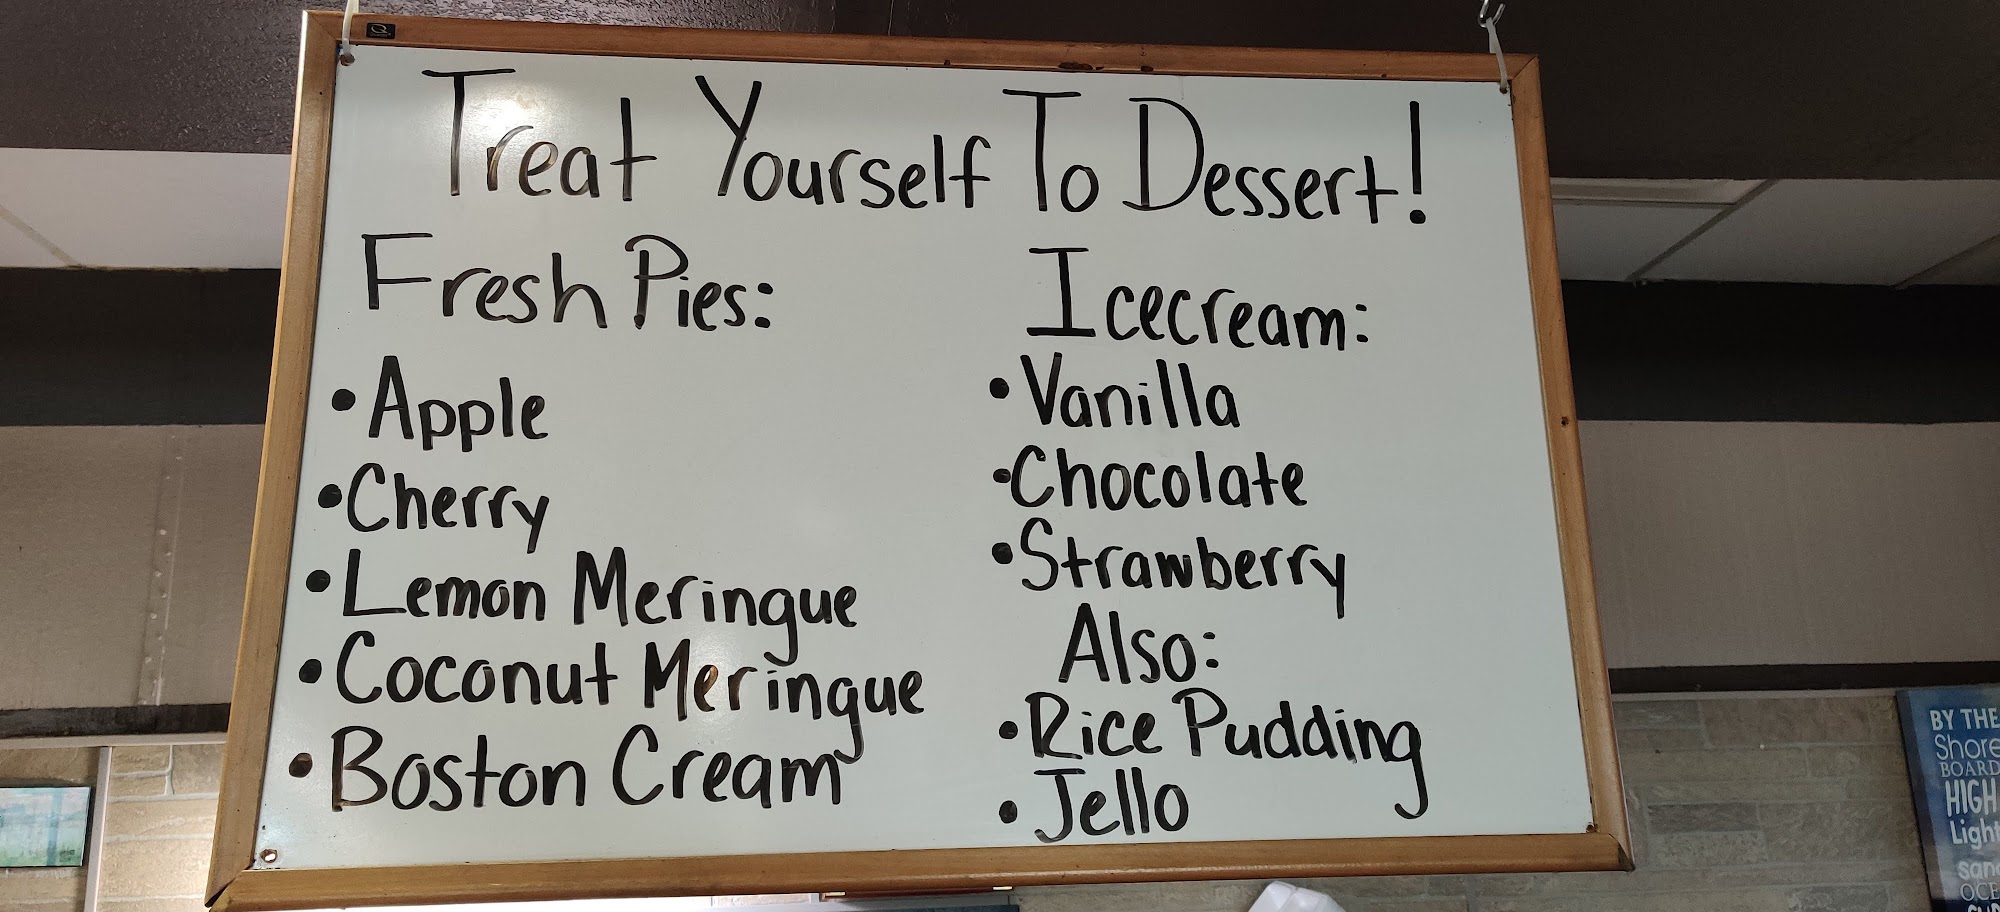 Treat Yourself To Dessert!
Fresh Pies:
• Apple
• Cherry
• Lemon Meringue
• Coconut Meringue
• Boston Cream
Icecream:
• Vanilla
• Chocolate
• Strawberry
Also:
• Rice Pudding
• Jello
BY THE
Shore
BOARD
HIGH
Light